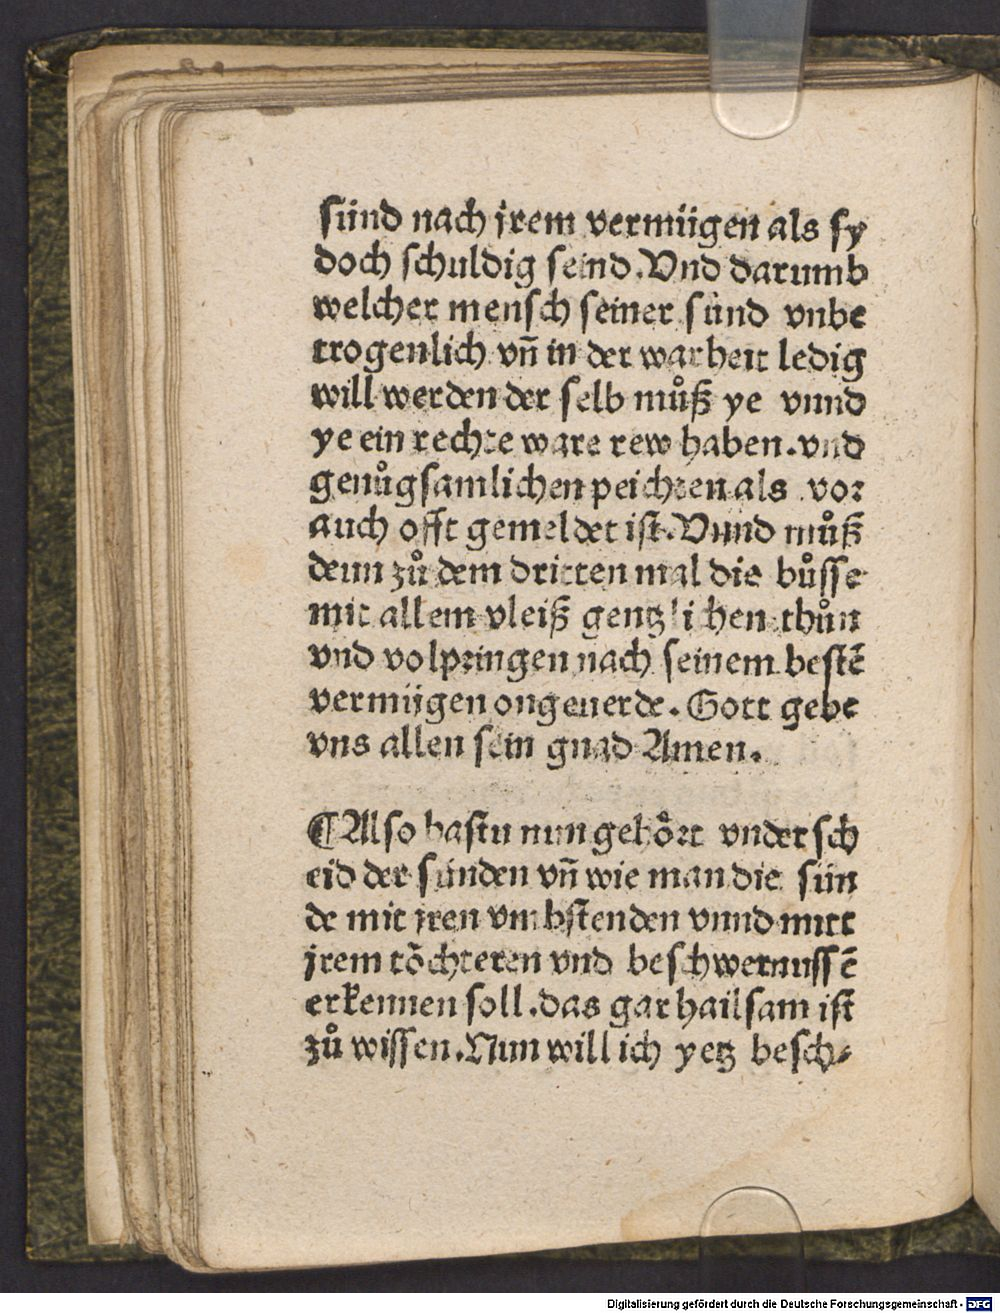 sünd nach jrem vermügen als sy
doch schuldig seind. Vnd darumb
welcher mensch seiner sünd vnbe
trogenlich vñ in der warheit ledig
will werden der selb můß ye vnnd
ye ein rechte ware rew haben. vnd
genůgsamlichen peichten als vor
auch offt gemeldet ist. Vnnd můß
denn zů dem dritten mal die bůsse
mit allem vleiß gentzlichen thůn
vnd volpringen nach seinem bestē
vermügen ongeuerde. Gott gebe
vns allen sein gnad Amen.
¶ Also hastu nun gehört vndersch
eid der sünden vñ wie man die sün
de mit jren vmbstenden vnnd mitt
jrem töchteren vnd beschwernussē
erkennen soll. das gar hailsam ist
zů wissen. Nun will ich yetz besch⸗
Digitalisierung gefördert durch die Deutsche Forschungsgemeinschaft - DFG